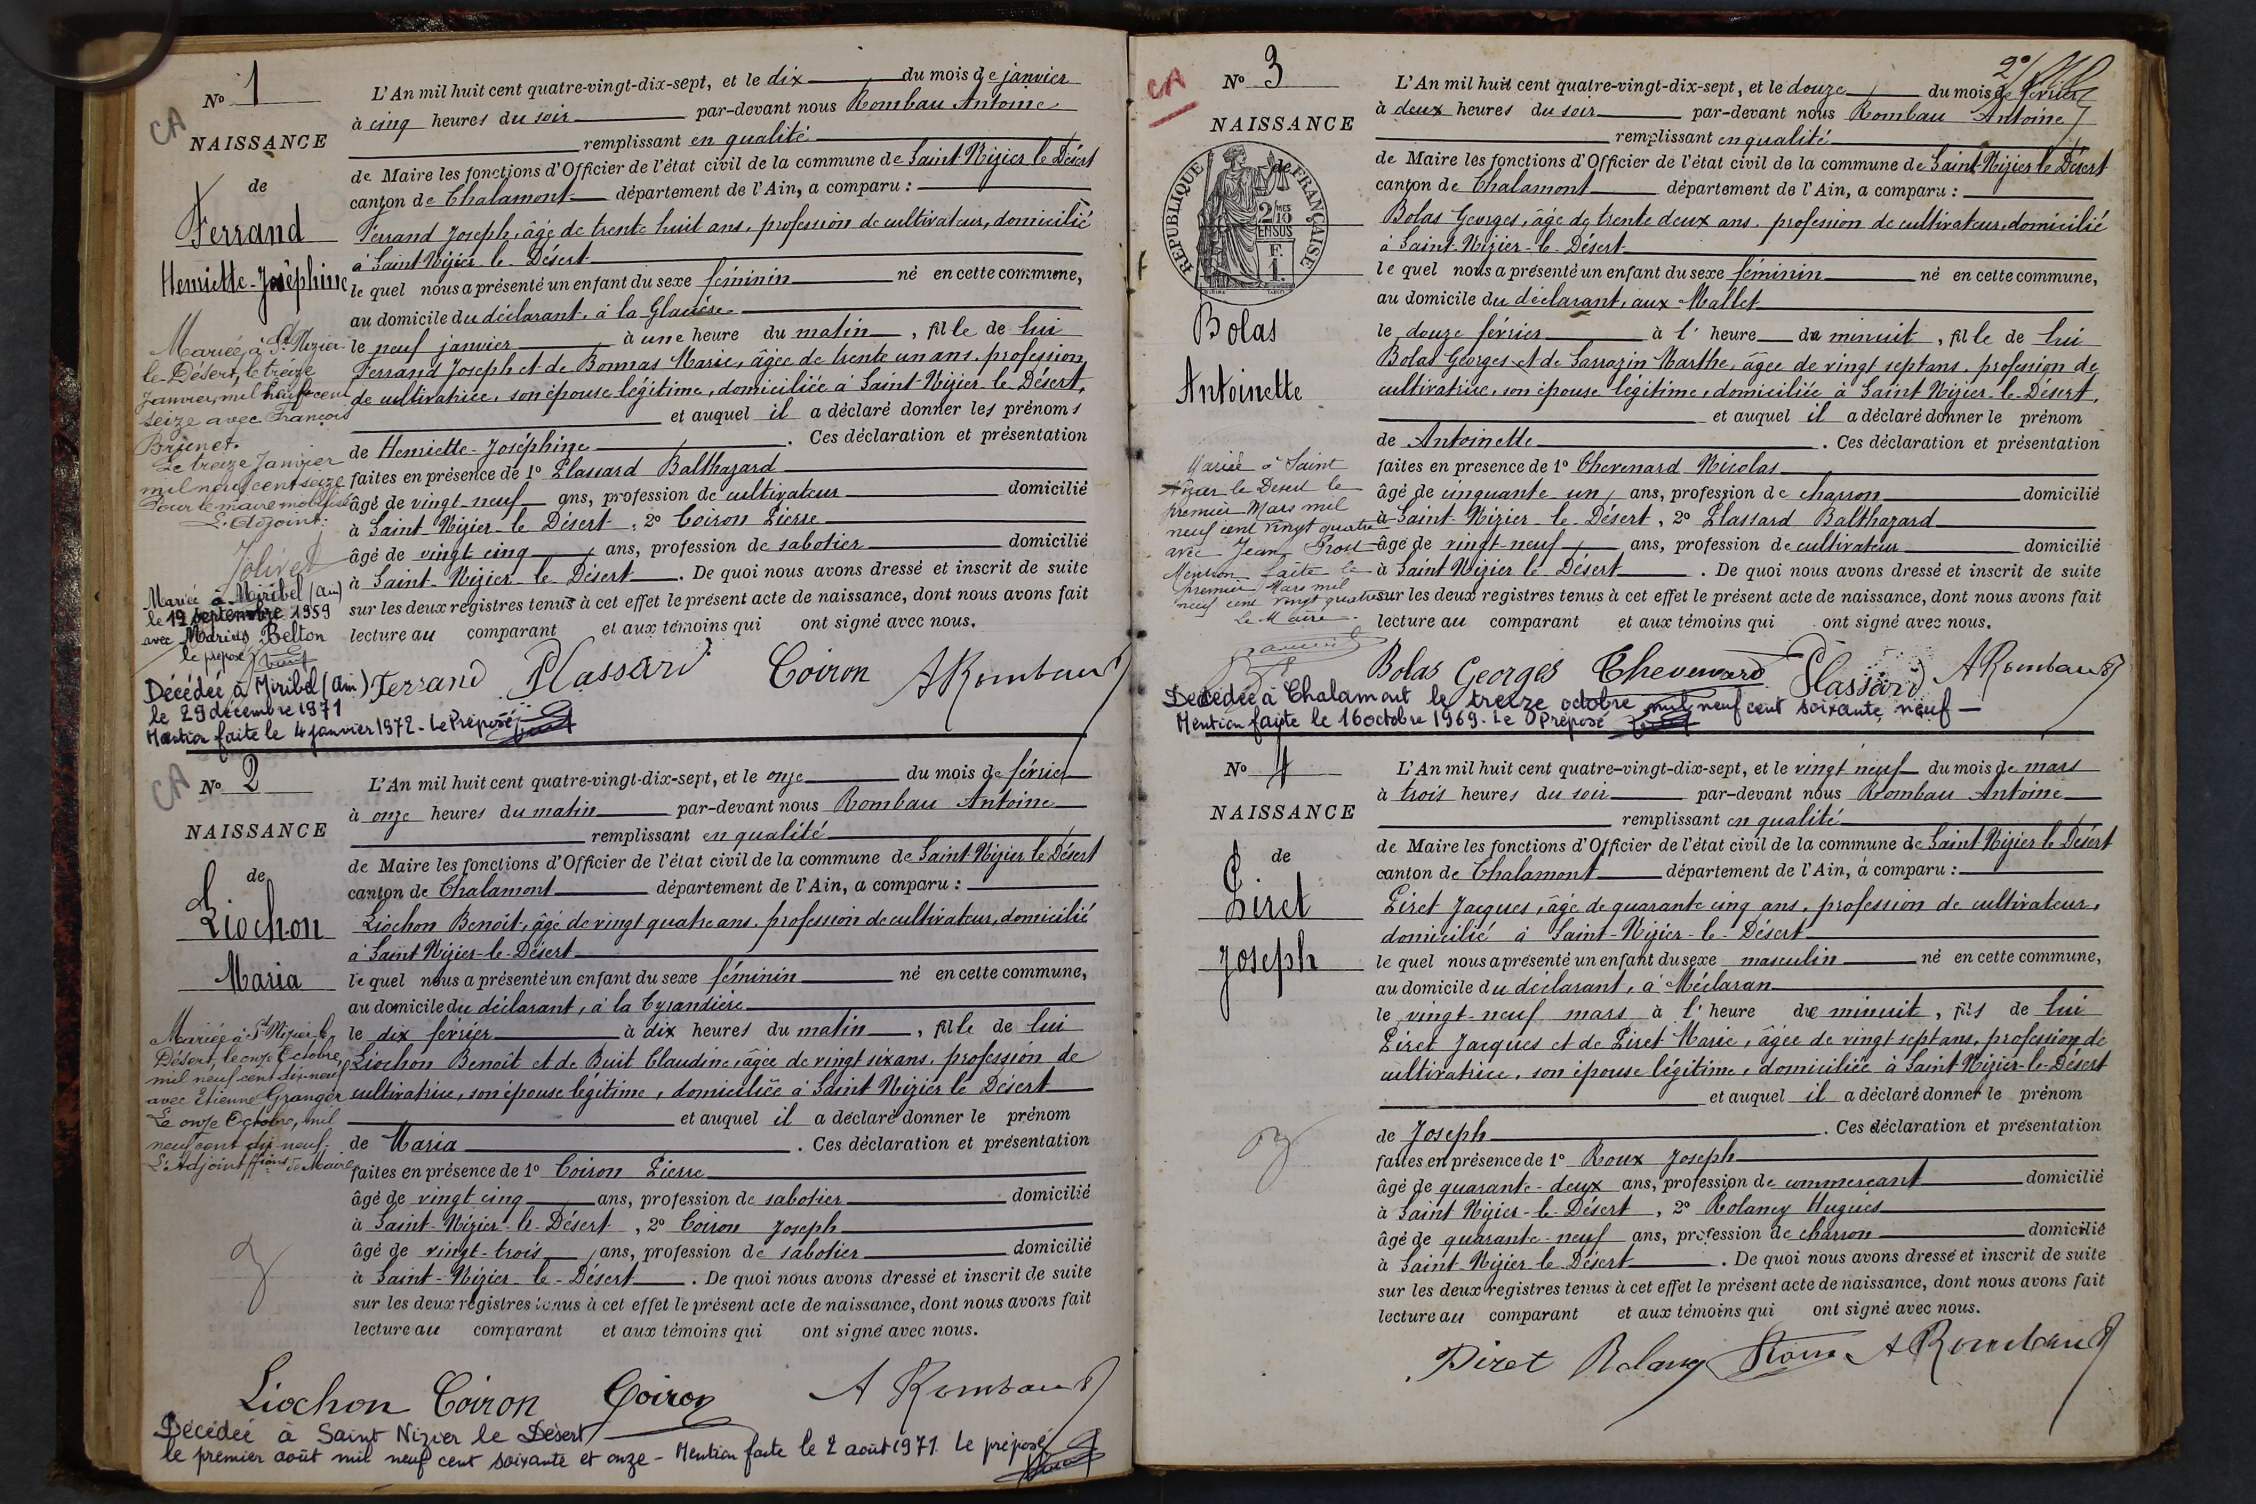 CA
N° 1
NAISSANCE
de
Ferrand
Henriette-Joséphine
Mariée à St Nizier
le Désert, le treize
Janvier, mil neuf cent
seize avec François
Brunet.
Le treize Janvier
mil neuf cent seize
Pour le maire mobilisé
L'Adjoint:
Jolivet
Mariée à Miribel (Ain)
le 19 septembre 1959
avec Marius Belton
le préposé
L'An mil huit cent quatre-vingt-dix-sept, et le dix du mois de janvier
à cinq heures du soir par-devant nous Rombau Antoine
remplissant en qualité
de Maire les fonctions d'Officier de l'état civil de la commune de Saint Nizier le Désert
canton de Chalamont département de l'Ain, a comparu :
Ferrand Joseph, âgé de trente huit ans, profession de cultivateur, domicilié
à Saint Nizier-le-Désert
le quel nous a présenté un enfant du sexe féminin né en cette commune,
au domicile du déclarant, à la Glacière
le neuf janvier à une heure du matin, fille de lui
Ferrand Joseph et de Bonnas Marie, âgée de trente un ans, profession
de cultivatrice, son épouse légitime, domiciliée à Saint-Nizier-le-Désert,
et auquel il a déclaré donner les prénoms
de Henriette-Joséphine . Ces déclaration et présentation
faites en présence de 1° Plassard Balthazard
âgé de vingt neuf ans, profession de cultivateur domicilié
à Saint-Nizier-le-Désert, 2° Coiron Pierre
âgé de vingt cinq ans, profession de sabotier domicilié
à Saint-Nizier-le-Désert . De quoi nous avons dressé et inscrit de suite
sur les deux registres tenus à cet effet le présent acte de naissance, dont nous avons fait
lecture au comparant et aux témoins qui ont signé avec nous.
Ferrand Plassard Coiron A Rombau
Décédée à Miribel (Ain)
le 29 décembre 1971
Mention faite le 4 janvier 1972 - Le Préposé
CA
N° 2
NAISSANCE
de
Liochon
Maria
Mariée à St Nizier-le
Désert, le onze Octobre
mil neuf cent dix-neuf
avec Etienne Granger
Le onze Octobre, mil
neuf cent dix neuf.
L'Adjoint ffions de Maire
L'An mil huit cent quatre-vingt-dix-sept, et le onze du mois de février
à onze heures du matin par-devant nous Rombau Antoine
remplissant en qualité
de Maire les fonctions d'Officier de l'état civil de la commune de Saint-Nizier le Désert
canton de Chalamont département de l'Ain, a comparu :
Liochon Benoît, âgé de vingt quatre ans, profession de cultivateur, domicilié
à Saint Nizier-le-Désert
le quel nous a présenté un enfant du sexe féminin né en cette commune,
au domicile du déclarant, à la Cyrandière
le dix février à dix heures du matin, fille de lui
Liochon Benoît et de Buit Claudine, âgée de vingt six ans, profession de
cultivatrice, son épouse légitime, domiciliée à Saint Nizier le Désert
et auquel il a déclaré donner le prénom
de Maria . Ces déclaration et présentation
faites en présence de 1° Coiron Pierre
âgé de vingt cinq ans, profession de sabotier domicilié
à Saint-Nizier-le-Désert, 2° Coiron Joseph
âgé de vingt-trois ans, profession de sabotier domicilié
à Saint-Nizier-le-Désert . De quoi nous avons dressé et inscrit de suite
sur les deux registres tenus à cet effet le présent acte de naissance, dont nous avons fait
lecture au comparant et aux témoins qui ont signé avec nous.
Liochon Coiron Coiron A Rombau
Décédée à Saint Nizier le Désert
le premier août mil neuf cent soixante et onze - Mention faite le 2 août 1971. Le préposé
2°
CA
N° 3
NAISSANCE
de
RÉPUBLIQUE FRANÇAISE
2/10 MES
EN SUS
F.
1.
Bolas
Antoinette
Mariée à Saint
Nizier le Désert le
premier Mars mil
neuf cent vingt quatre
avec Jean Prost
Mention faite le
premier Mars mil
neuf cent vingt quatre
Le Maire.
L'An mil huit cent quatre-vingt-dix-sept, et le douze du mois de février
à deux heures du soir par-devant nous Rombau Antoine
remplissant en qualité
de Maire les fonctions d'Officier de l'état civil de la commune de Saint-Nizier le Désert
canton de Chalamont département de l'Ain, a comparu :
Bolas Georges, âgé de trente deux ans, profession de cultivateur, domicilié
à Saint-Nizier-le-Désert
le quel nous a présenté un enfant du sexe féminin né en cette commune,
au domicile du déclarant, aux Mallet
le douze février à l' heure de minuit, fille de lui
Bolas Georges et de Sarrazin Marthe, âgée de vingt sept ans, profession de
cultivatrice, son épouse légitime, domiciliée à Saint Nizier-le-Désert,
et auquel il a déclaré donner le prénom
de Antoinette . Ces déclaration et présentation
faites en présence de 1° Chevenard Nicolas
âgé de cinquante un ans, profession de charron domicilié
à Saint-Nizier-le-Désert, 2° Plassard Balthazard
âgé de vingt-neuf ans, profession de cultivateur domicilié
à Saint Nizier le Désert . De quoi nous avons dressé et inscrit de suite
sur les deux registres tenus à cet effet le présent acte de naissance, dont nous avons fait
lecture au comparant et aux témoins qui ont signé avec nous.
Bolas Georges Chevenard Plassard A Rombau
Décédée à Chalamont le treize octobre mil neuf cent soixante neuf -
Mention faite le 16 octobre 1969. Le Préposé
N° 4
NAISSANCE
de
Piret
Joseph
L'An mil huit cent quatre-vingt-dix-sept, et le vingt neuf du mois de mars
à trois heures du soir par-devant nous Rombau Antoine
remplissant en qualité
de Maire les fonctions d'Officier de l'état civil de la commune de Saint Nizier le Désert
canton de Chalamont département de l'Ain, a comparu :
Piret Jacques, âgé de quarante cinq ans, profession de cultivateur,
domicilié à Saint-Nizier-le-Désert
le quel nous a présenté un enfant du sexe masculin né en cette commune,
au domicile du déclarant, à Méclaran
le vingt-neuf mars à l' heure de minuit, fils de lui
Piret Jacques et de Piret Marie, âgée de vingt sept ans, profession de
cultivatrice, son épouse légitime, domiciliée à Saint Nizier-le-Désert
et auquel il a déclaré donner le prénom
de Joseph . Ces déclaration et présentation
faites en présence de 1° Roux Joseph
âgé de quarante-deux ans, profession de commerçant domicilié
à Saint Nizier-le-Désert, 2° Rolancy Hugues
âgé de quarante-neuf ans, profession de charron domicilié
à Saint Nizier le Désert . De quoi nous avons dressé et inscrit de suite
sur les deux registres tenus à cet effet le présent acte de naissance, dont nous avons fait
lecture au comparant et aux témoins qui ont signé avec nous.
Piret Rolancy Roux A Rombau